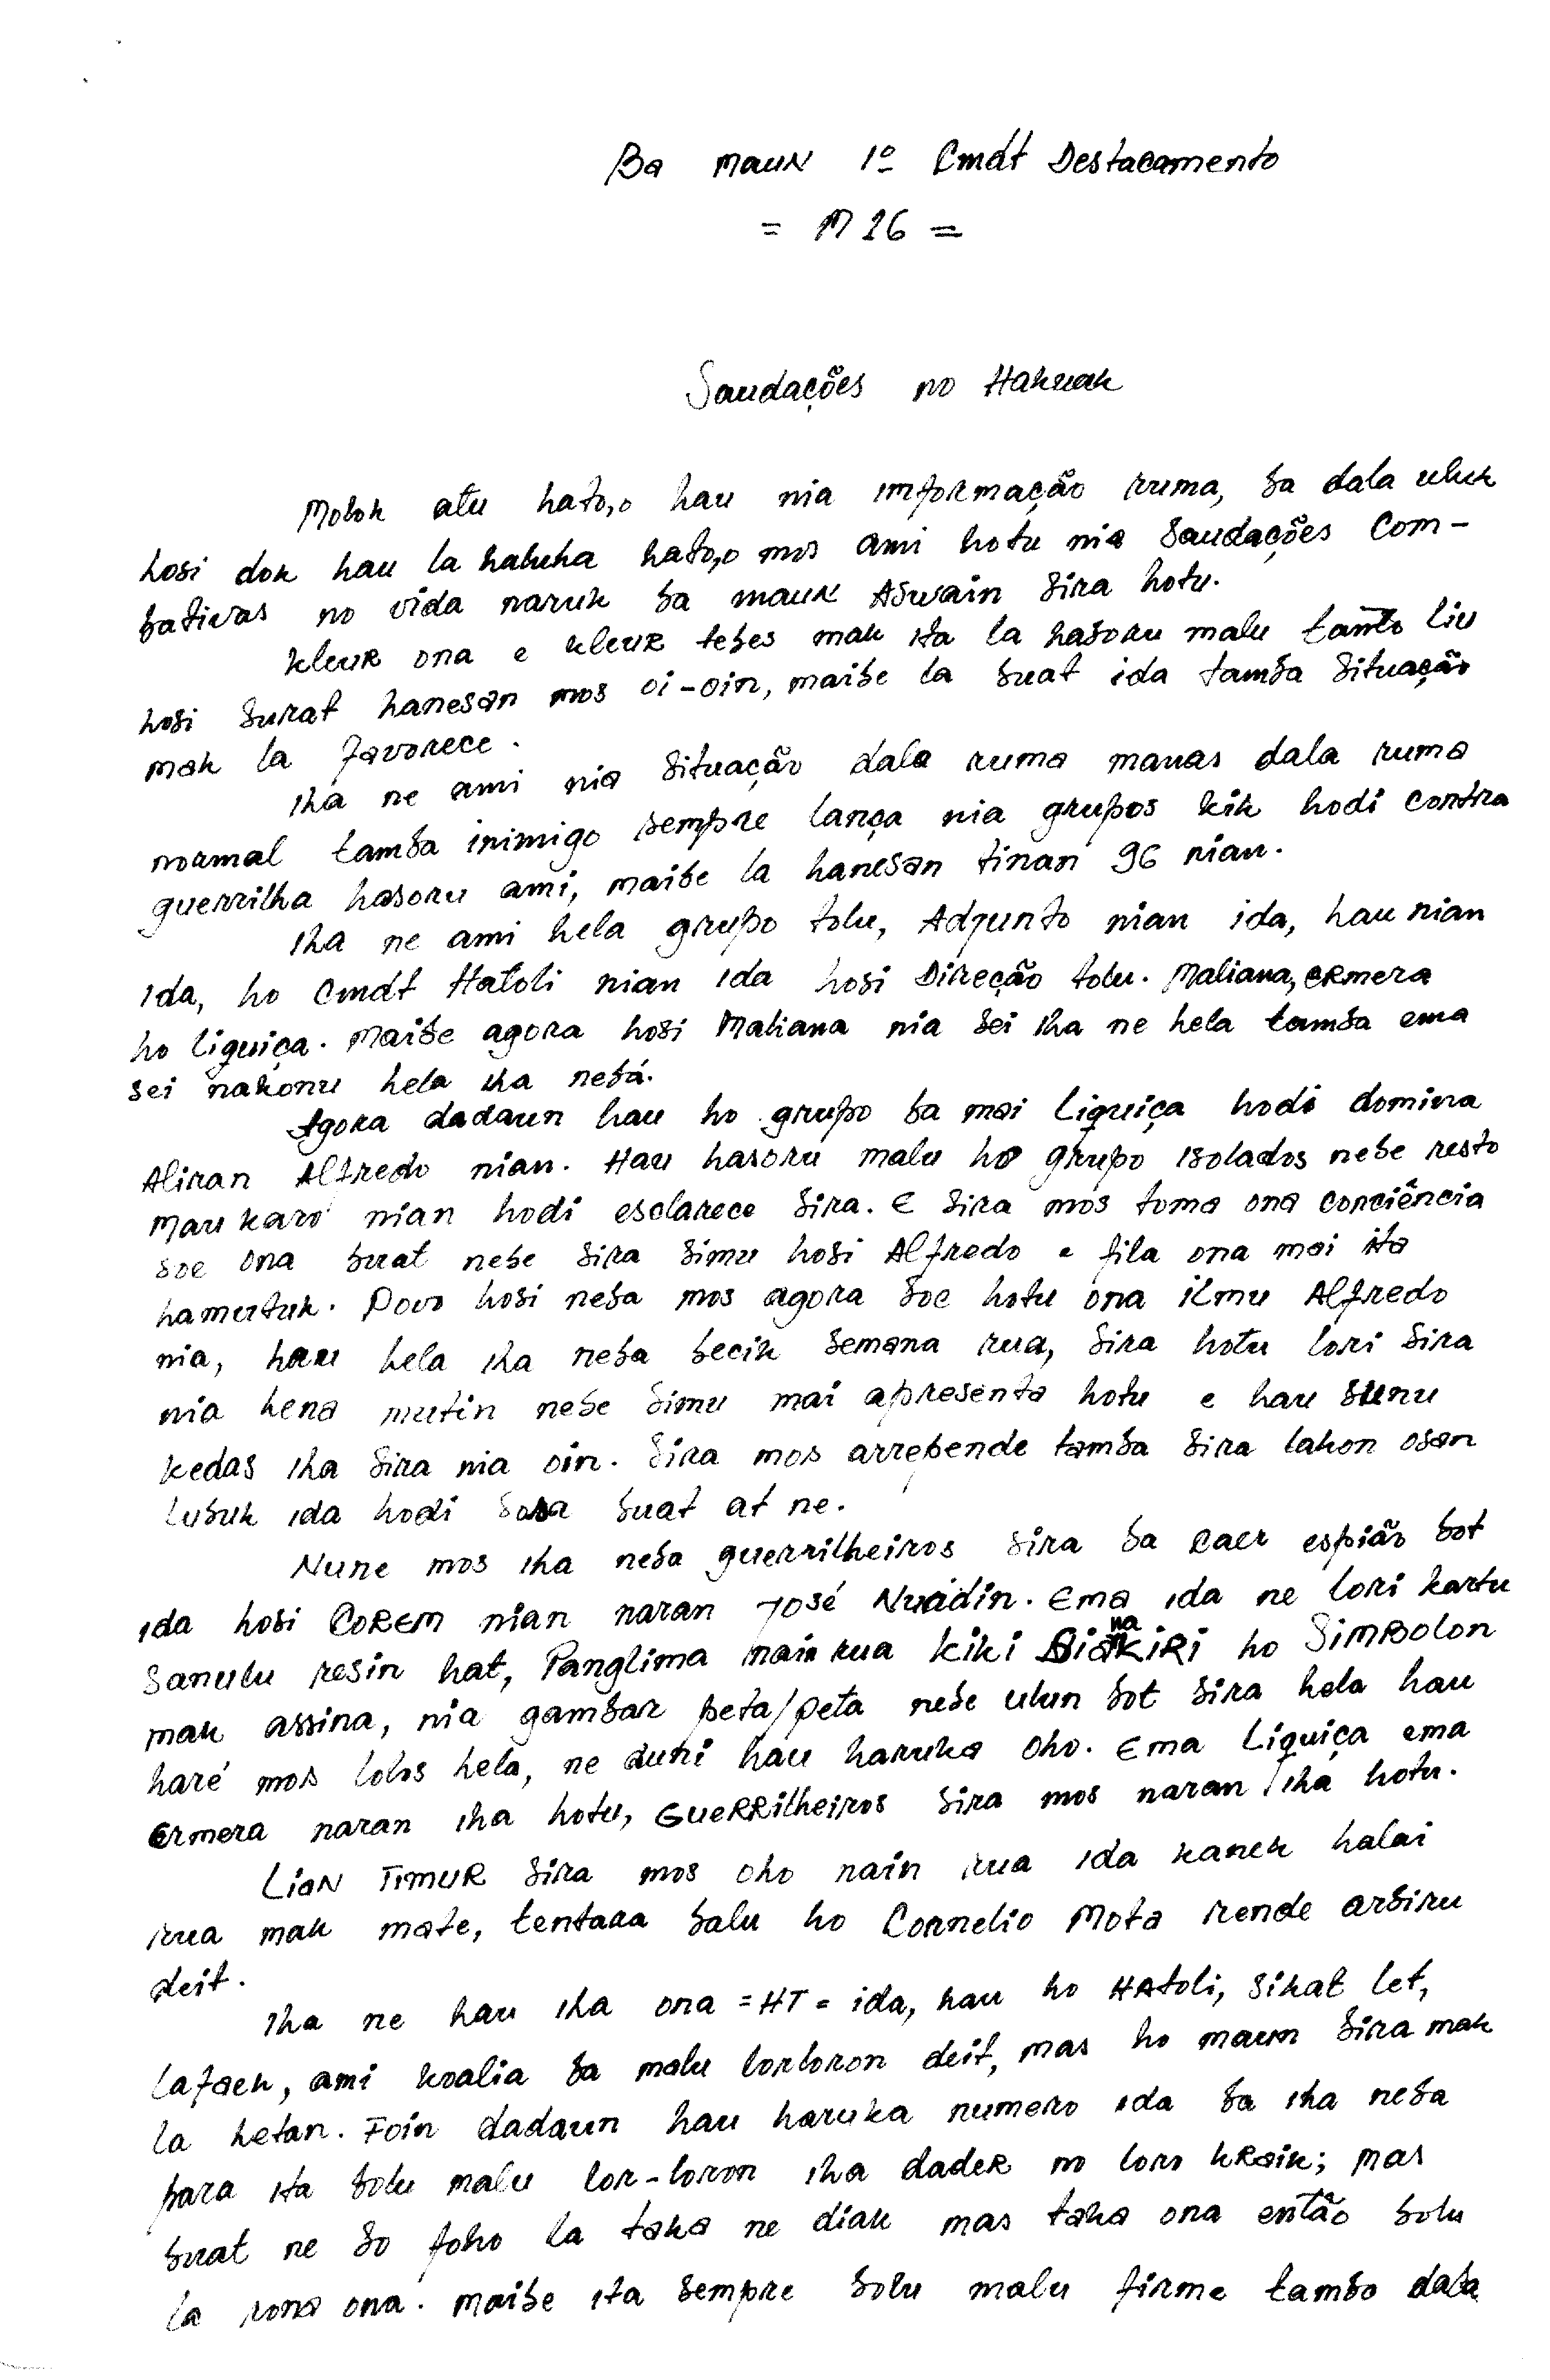 Ba maun 1º Cmdt Destacamento
= M 16 =
Saudações no Hakuak
Molok atu hato,o hau nia informação ruma, ba dala uluk
hosi dok hau la haluha hato,o mos ami hotu nia Saudações Com-
bativas no vida naruk ba maun Aswain sira hotu.
Kleur ona e kleur tebes mak ita la hasoru malu tanto liu
hosi surat hanesan mos oi-oin, maibe la buat ida tamba situação
mak la favorece.
Iha ne ami nia situação dala ruma manas dala ruma
normal tamba inimigo sempre lança nia grupos kik hodi contra
guerrilha hasoru ami, maibe la hanesan tinan 96 nian.
Iha ne ami hela grupo tolu, Adjunto nian ida, hau nian
ida, ho Cmdt Hatoli nian ida hosi Direção tolu. Maliana, Ermera
ho liquiça. Maibe agora hosi Maliana nia sei iha ne hela tamba ema
sei nakonu hela iha nebá.
Agora dadaun hau ho grupo ba mai Liquiça hodi domina
Aliran Alfredo nian. Hau hasoru malu ho grupo isolados nebe resto
Maukaro nian hodi esclarece sira. E sira mos toma ona conciência
soe ona buat nebe sira simu hosi Alfredo e fila ona mai ita
hamutuk. Povo hosi neba mos agora soe hotu ona ilmu Alfredo
nia, hau hela iha neba becik semana rua, sira hotu lori sira
nia hena mutin nebe simu mai apresenta hotu e hau sunu
kedas iha sira nia oin. Sira mos arrepende tamba sira lakon osan
lubuk ida hodi sosa buat at ne.
Nune mos iha neba guerrilheiros sira ba caer espião bot
ida hosi COREM nian naran José Nuradin. Ema ida ne lori kartu
sanulu resin hat, Panglima nain rua kiki Sianakiri ho Simbolon
mak assina, nia gambar peta/peta nebe ulun bot sira hela hau
haré mos lolos hela, ne duni hau haruka oho. Ema Liquiça ema
Ermera naran iha hotu, Guerrilheiros sira mos naran iha hotu.
Lion Timur sira mos oho nain rua ida kanek halai
rua mak mate, tentara balu ho Cornelio Mota rende arbiru
deit.
Iha ne hau iha ona =HT= ida, hau ho HAtoli, Sikat let,
Lafaek, ami koalia ba malu lorloron deit, mas ho maun sira mak
la hetan. Foin dadaun hau haruka numero ida ba iha neba
para ita bolu malu lor-loron iha dader no loro kraik; mas
buat ne bo foho la taka ne diak mas taka ona então bolu
la rona ona. Maibe ita sempre bolu malu firme tambo dala